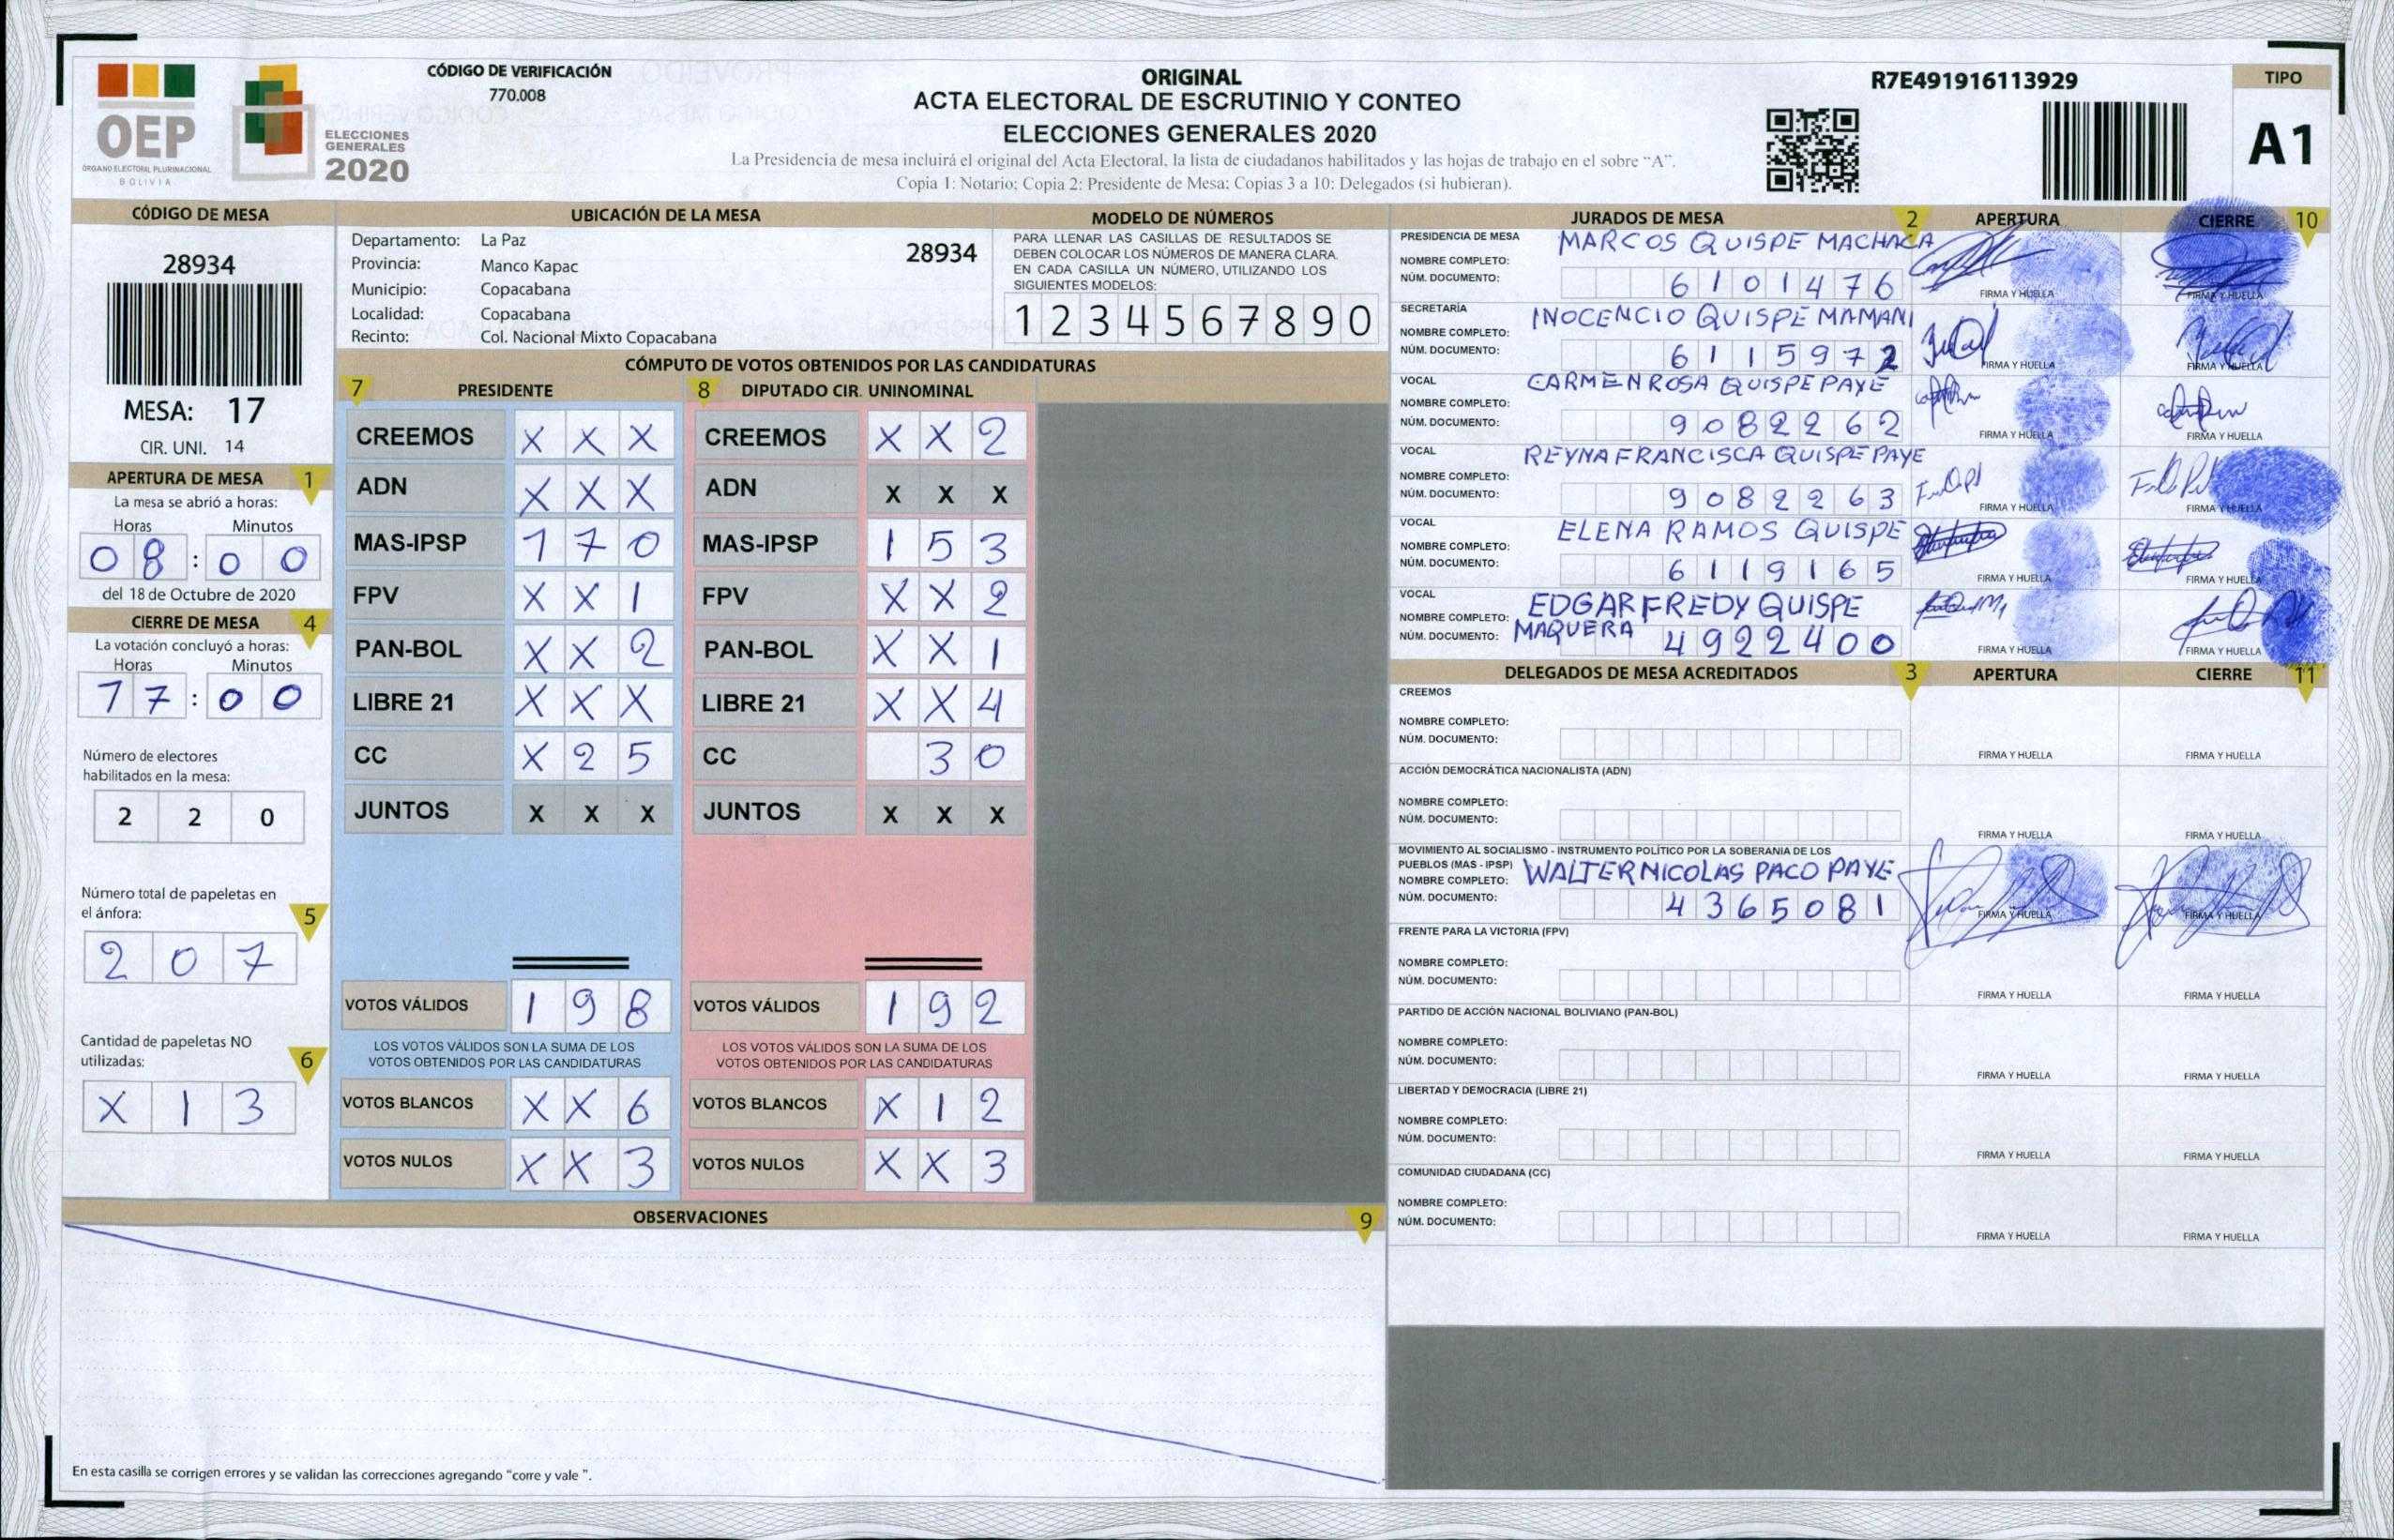 OEP
ÓRGANO ELECTORAL PLURINACIONAL
BOLIVIA
ELECCIONES
GENERALES
2020
CÓDIGO DE VERIFICACIÓN
770.008
ORIGINAL
ACTA ELECTORAL DE ESCRUTINIO Y CONTEO
ELECCIONES GENERALES 2020
La Presidencia de mesa incluirá el original del Acta Electoral, la lista de ciudadanos habilitados y las hojas de trabajo en el sobre “A”.
Copia 1: Notario; Copia 2: Presidente de Mesa; Copias 3 a 10: Delegados (si hubieran).
R7E491916113929
TIPO
A1
CÓDIGO DE MESA
28934
MESA: 17
CIR. UNI. 14
APERTURA DE MESA 1
La mesa se abrió a horas:
Horas Minutos
0 8 : 0 0
del 18 de Octubre de 2020
CIERRE DE MESA 4
La votación concluyó a horas:
Horas Minutos
1 7 : 0 0
Número de electores
habilitados en la mesa:
2 2 0
Número total de papeletas en
el ánfora: 5
2 0 7
Cantidad de papeletas NO
utilizadas: 6
X 1 3
UBICACIÓN DE LA MESA
Departamento: La Paz 28934
Provincia: Manco Kapac
Municipio: Copacabana
Localidad: Copacabana
Recinto: Col. Nacional Mixto Copacabana
MODELO DE NÚMEROS
PARA LLENAR LAS CASILLAS DE RESULTADOS SE
DEBEN COLOCAR LOS NÚMEROS DE MANERA CLARA.
EN CADA CASILLA UN NÚMERO, UTILIZANDO LOS
SIGUIENTES MODELOS:
1 2 3 4 5 6 7 8 9 0
CÓMPUTO DE VOTOS OBTENIDOS POR LAS CANDIDATURAS
7 PRESIDENTE
CREEMOS X X X
ADN X X X
MAS-IPSP 1 7 0
FPV X X 1
PAN-BOL X X 2
LIBRE 21 X X X
CC X 2 5
JUNTOS X X X
VOTOS VÁLIDOS 1 9 8
LOS VOTOS VÁLIDOS SON LA SUMA DE LOS
VOTOS OBTENIDOS POR LAS CANDIDATURAS
VOTOS BLANCOS X X 6
VOTOS NULOS X X 3
8 DIPUTADO CIR. UNINOMINAL
CREEMOS X X 2
ADN X X X
MAS-IPSP 1 5 3
FPV X X 2
PAN-BOL X X 1
LIBRE 21 X X 4
CC 3 0
JUNTOS X X X
VOTOS VÁLIDOS 1 9 2
LOS VOTOS VÁLIDOS SON LA SUMA DE LOS
VOTOS OBTENIDOS POR LAS CANDIDATURAS
VOTOS BLANCOS X 1 2
VOTOS NULOS X X 3
OBSERVACIONES 9
En esta casilla se corrigen errores y se validan las correcciones agregando "corre y vale ".
JURADOS DE MESA 2 APERTURA CIERRE 10
PRESIDENCIA DE MESA
NOMBRE COMPLETO: MARCOS QUISPE MACHACA
NÚM. DOCUMENTO: 6 1 0 1 4 7 6
FIRMA Y HUELLA FIRMA Y HUELLA
SECRETARÍA
NOMBRE COMPLETO: INOCENCIO QUISPE MAMANI
NÚM. DOCUMENTO: 6 1 1 5 9 7 2
FIRMA Y HUELLA FIRMA Y HUELLA
VOCAL
NOMBRE COMPLETO: CARMEN ROSA QUISPE PAYE
NÚM. DOCUMENTO: 9 0 8 2 2 6 2
FIRMA Y HUELLA FIRMA Y HUELLA
VOCAL
NOMBRE COMPLETO: REYNA FRANCISCA QUISPE PAYE
NÚM. DOCUMENTO: 9 0 8 2 2 6 3
FIRMA Y HUELLA FIRMA Y HUELLA
VOCAL
NOMBRE COMPLETO: ELENA RAMOS QUISPE
NÚM. DOCUMENTO: 6 1 1 9 1 6 5
FIRMA Y HUELLA FIRMA Y HUELLA
VOCAL
NOMBRE COMPLETO: EDGAR FREDY QUISPE
MAQUERA
NÚM. DOCUMENTO: 4 9 2 2 4 0 0
FIRMA Y HUELLA FIRMA Y HUELLA
DELEGADOS DE MESA ACREDITADOS 3 APERTURA CIERRE 11
CREEMOS
NOMBRE COMPLETO:
NÚM. DOCUMENTO:
FIRMA Y HUELLA FIRMA Y HUELLA
ACCIÓN DEMOCRÁTICA NACIONALISTA (ADN)
NOMBRE COMPLETO:
NÚM. DOCUMENTO:
FIRMA Y HUELLA FIRMA Y HUELLA
MOVIMIENTO AL SOCIALISMO - INSTRUMENTO POLÍTICO POR LA SOBERANIA DE LOS
PUEBLOS (MAS - IPSP)
NOMBRE COMPLETO: WALTER NICOLAS PACO PAYE
NÚM. DOCUMENTO: 4 3 6 5 0 8 1
FIRMA Y HUELLA FIRMA Y HUELLA
FRENTE PARA LA VICTORIA (FPV)
NOMBRE COMPLETO:
NÚM. DOCUMENTO:
FIRMA Y HUELLA FIRMA Y HUELLA
PARTIDO DE ACCIÓN NACIONAL BOLIVIANO (PAN-BOL)
NOMBRE COMPLETO:
NÚM. DOCUMENTO:
FIRMA Y HUELLA FIRMA Y HUELLA
LIBERTAD Y DEMOCRACIA (LIBRE 21)
NOMBRE COMPLETO:
NÚM. DOCUMENTO:
FIRMA Y HUELLA FIRMA Y HUELLA
COMUNIDAD CIUDADANA (CC)
NOMBRE COMPLETO:
NÚM. DOCUMENTO:
FIRMA Y HUELLA FIRMA Y HUELLA